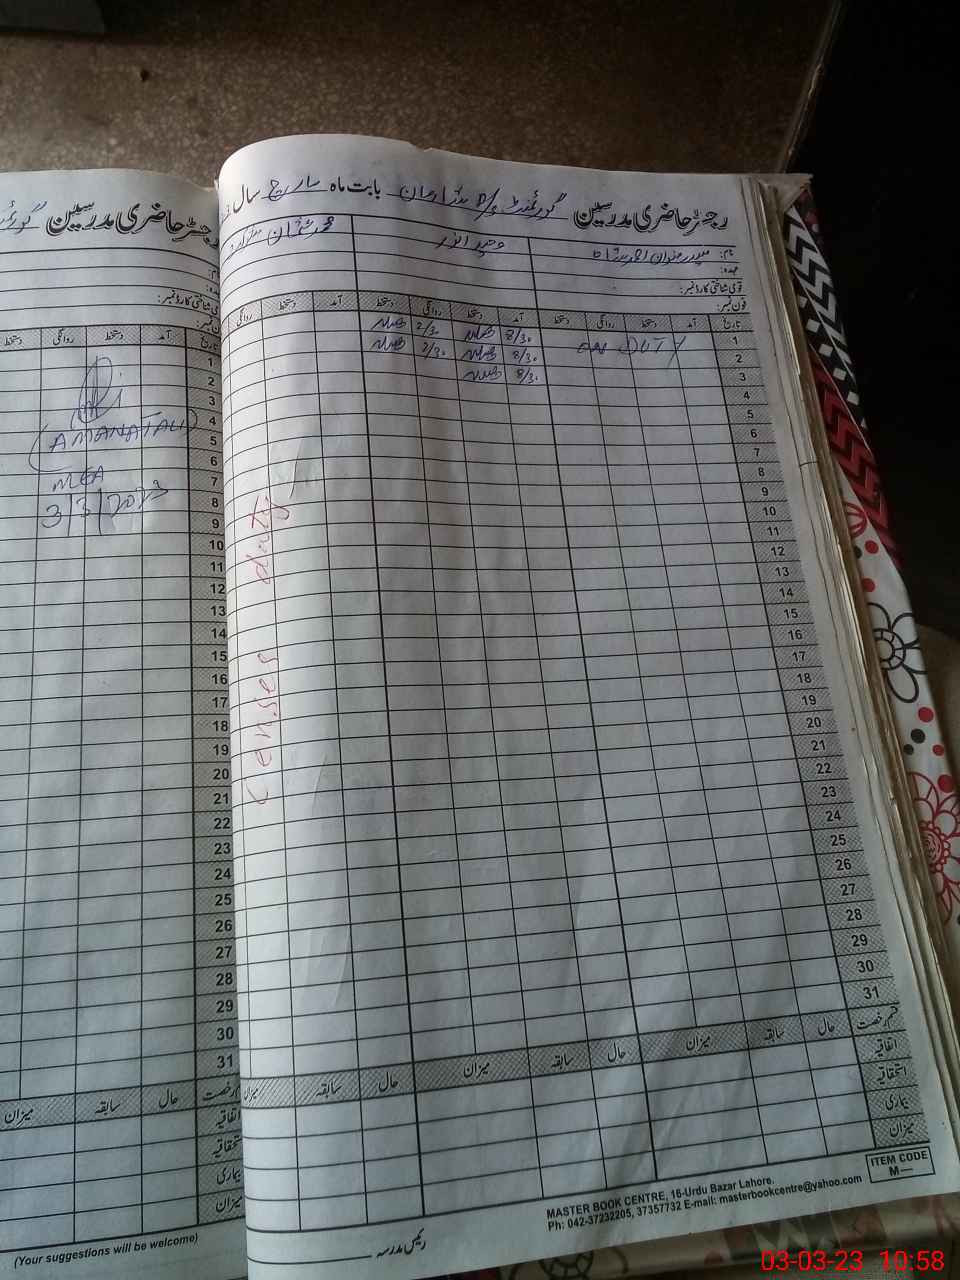 رجسٹر حاضری مدرسین گورنمنٹ P/S بابت ماہ مارچ سال
رجسٹر حاضری مدرسین
نام:
عہدہ:
قومی شناختی کارڈ نمبر:
فون نمبر:
تاریخ آمد دستخط روانگی دستخط آمد دستخط روانگی دستخط آمد دستخط روانگی
1 8/30 2/30
ON DUTY
2 8/30 2/30
3 8/30
4
5
6
7
8
9
10
11
12
13
14
15
16
17
18
19
20
21
22
23
24
25
26
27
28
29
30
31
duty
قسم رخصت حال سابقہ میزان حال سابقہ میزان حال سابقہ میزان
اتفاقیہ
استحقاقیہ
بیماری
میزان
ITEM CODE
M—
MASTER BOOK CENTRE, 16-Urdu Bazar Lahore.
Ph: 042-37232205, 37357732 E-mail: masterbookcentre@yahoo.com
رئیس مدرسہ
آمد دستخط روانگی دستخط
1
2
3
4
5
6
7
8
9
10
11
12
13
14
15
16
17
18
19
20
21
22
23
24
25
26
27
28
29
30
31
(AMANAT ALI)
MEA
3/3/2023
حال سابقہ میزان
اتفاقیہ
استحقاقیہ
بیماری
میزان
(Your suggestions will be welcome)
03-03-23 10:58